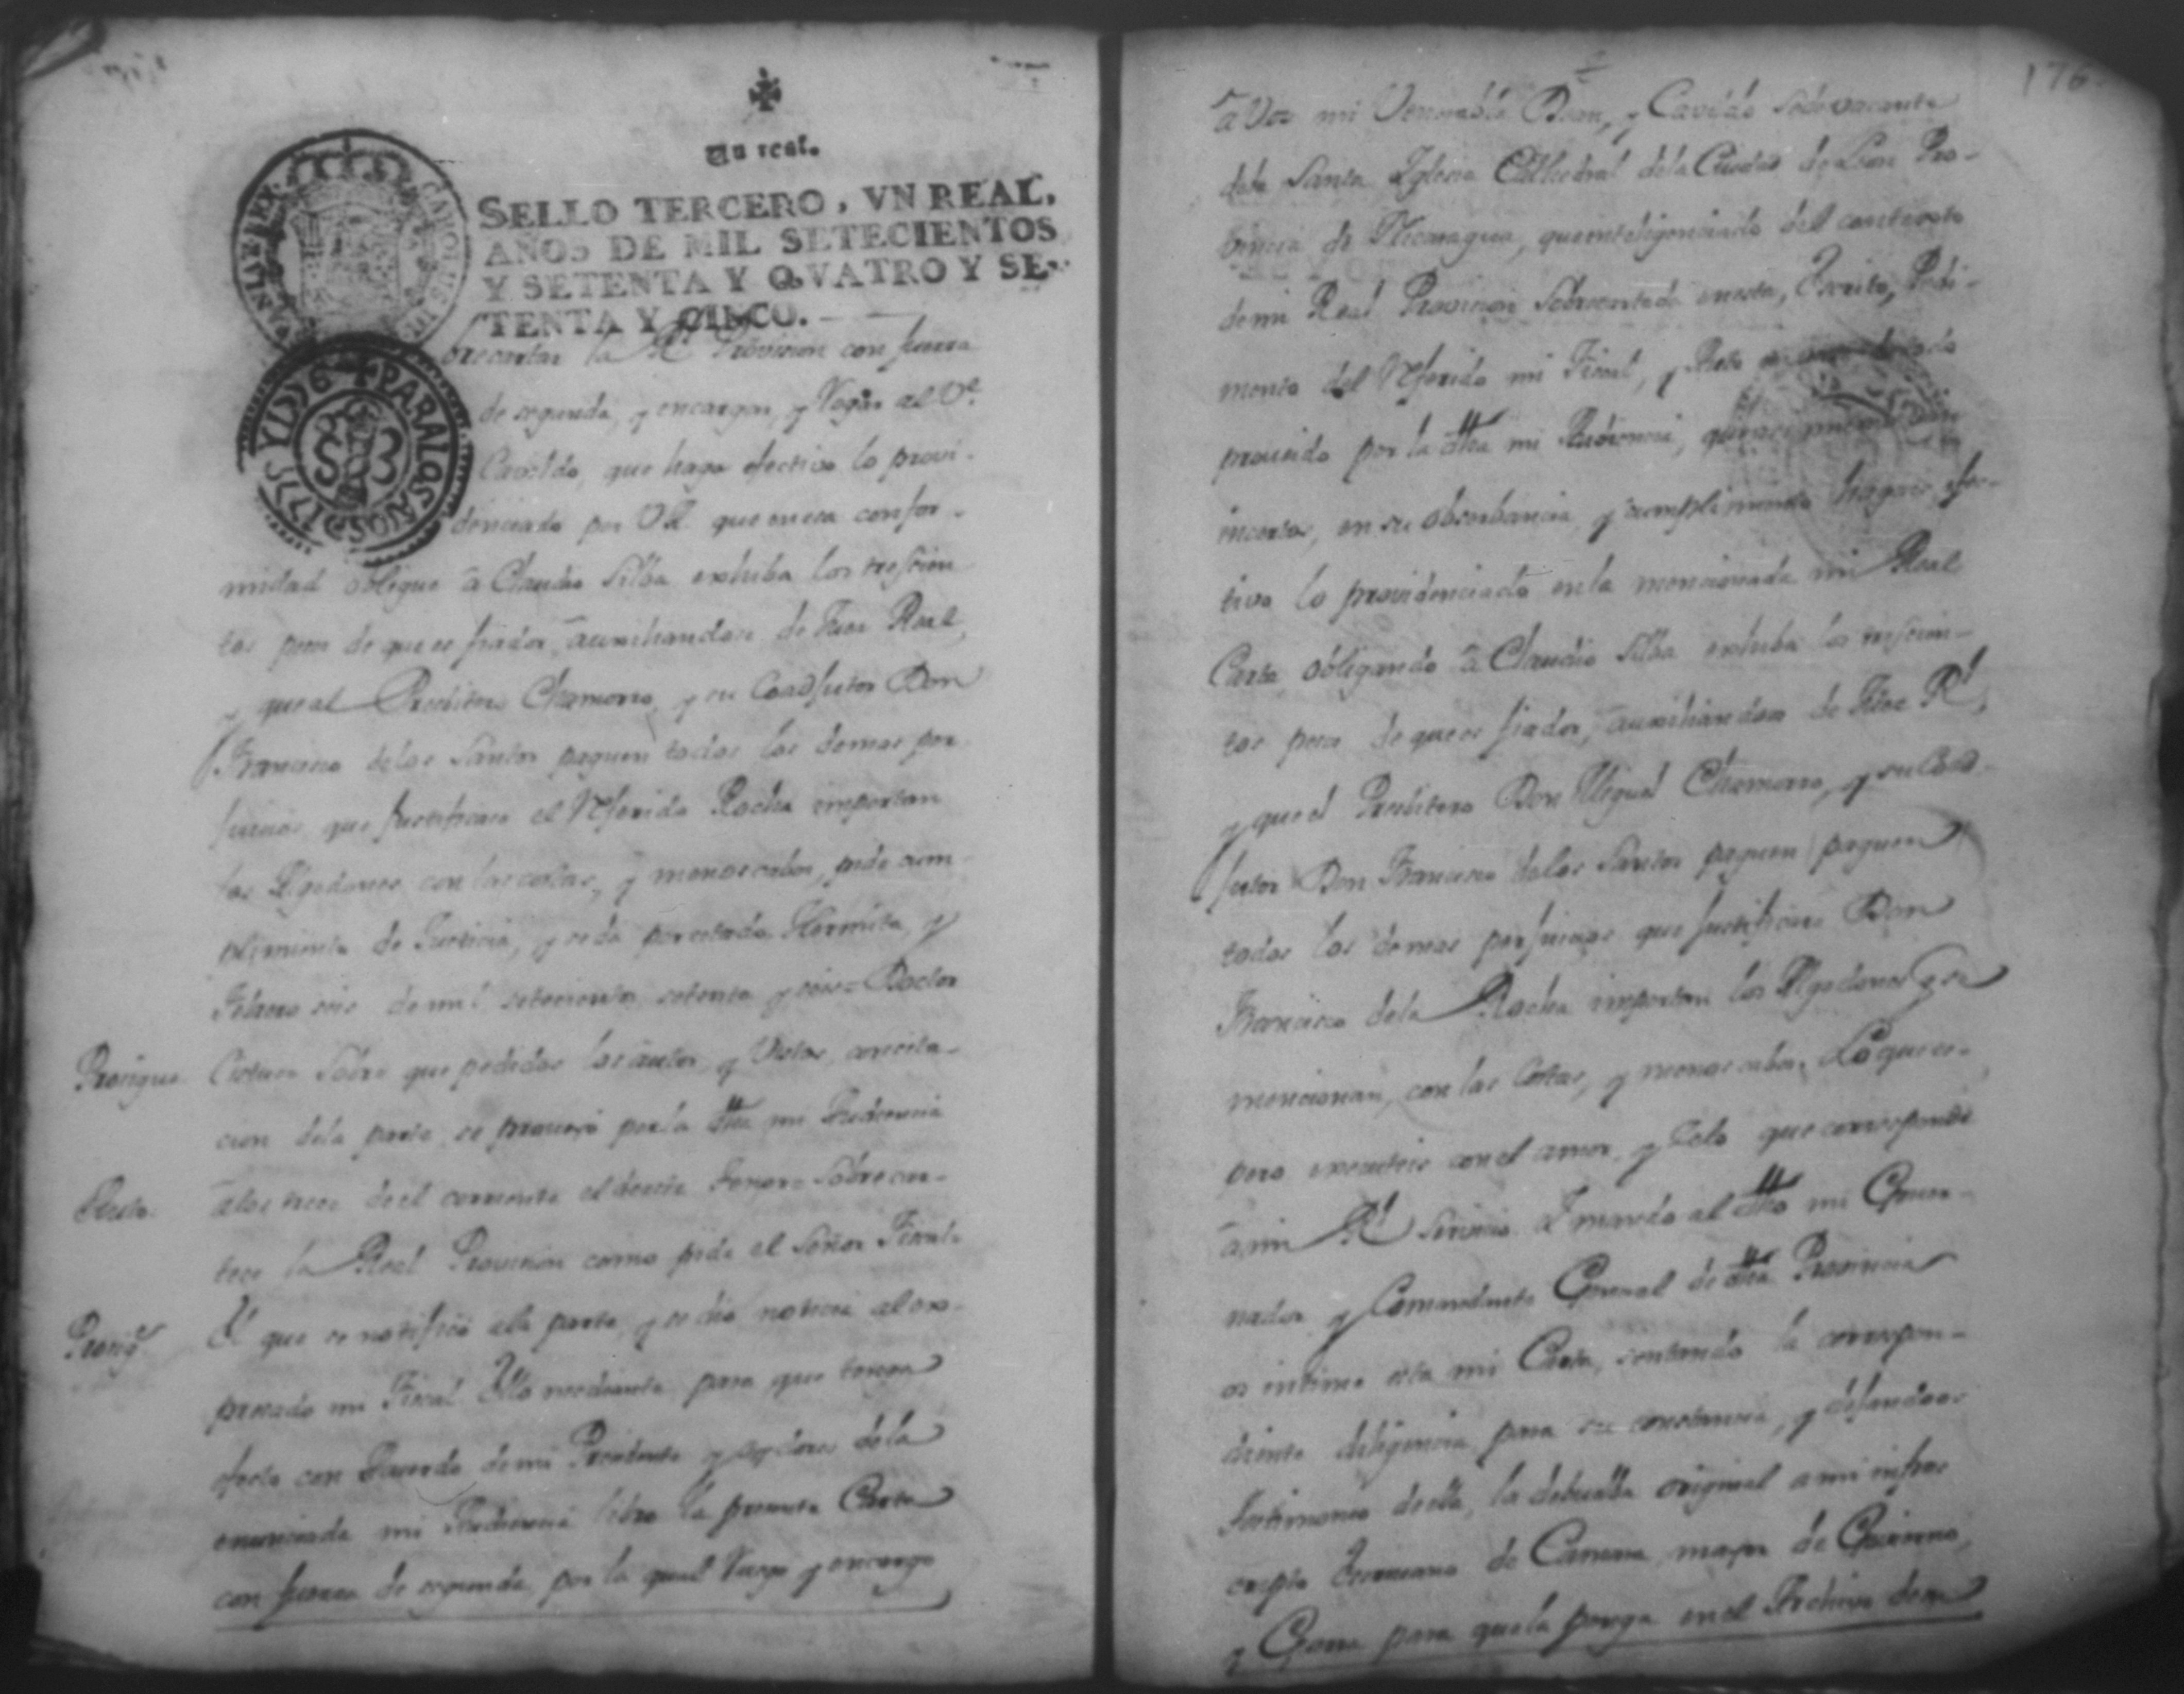 Un real.
SELLO TERCERO, VN REAL,
AÑOS DE MIL SETECIENTOS
Y SETENTA Y QVATRO Y SE-
TENTA Y CINCO.
CAROLUS III
PARA LOS AÑOS D 1775 Y 1776
S 3
brecartar la Rl Provicion con fuerza
de segunda, y encargar, y Rogar al Ve
Cavildo, que haga efectivo lo provi-
denciado por VA. que en esa confor-
midad obligue â Claudio Silba exhiba los trescien
tos pesos de que es fiador, auxiliandose de Juez Real,
y que al Presbitero Chamorro, y su Coadjutor Don
Francisco delos Santos paguen todos los demas per
juicios que justificare el Referido Rocha importan
los Algodones con las costas, y menoscabos, pide cum
plimiento de Justicia, y se da por citado. Hermita, y
Febrero seis de mil setecientos setenta y seis = Doctor
Prosigue. Sobre que pedidos los autos, y Vistos, con cita-
cion dela parte, se proveyó por la dha mi Audiencia
Auto. alos trece del corriente el deeste tenor = Sobrecar-
tese la Real Provicion como pide el Señor Fiscal =
Prosigue El que se notificó ala parte, y se dio noticia al ex-
presado mi Fiscal. mediante para que tenga
efecto con Acuerdo de mi Precidente y Oydores dela
enunciada mi Audiencia libro la presente Carta
con fuerza de segunda, por la qual Ruego y encargo
176
â Vos mi Venerable Dean, y Cavildo Sedevacante
dela Santa Iglesia Cathedral dela Ciudad de Leon Pro-
vincia de Nicaragua, que inteligenciado del contexto
de mi Real Provicion Sobrecartada en esta, Escrito, Pedi-
mento del Referido mi Fiscal, y Auto
proveido por la dha mi Audiencia, que
incertos, en su observancia, y cumplimiento hagais efec-
tivo lo providenciado en la mencionada mi Real
Carta obligando â Claudio Silba exhiba los trescien-
tos pesos de que es fiador, auxiliandoos de Juez Rl,
y que el Presbitero Don Miguel Chamorro, y su Coad-
jutor Don Francisco delos Santos paguen paguen
todos los demas perjuicios que justificare Don
Francisco dela Rocha importan los Algodones q se
mencionan, con las Costas, y menoscabos. Lo que es-
pero executeis con el amor, y Zelo que corresponde
â mi Rl Servicio. Y mando al dho mi Gover-
nador y Comandante General de dha Provincia
os intime esta mi Carta, sentando la correspon-
diente diligencia para su constancia, y dejandoos
testimonio deella, la debuelba original a mi infras
cripto Escrivano de Camara mayor de Govierno,
y Guerra para que la ponga en el Archivo de su